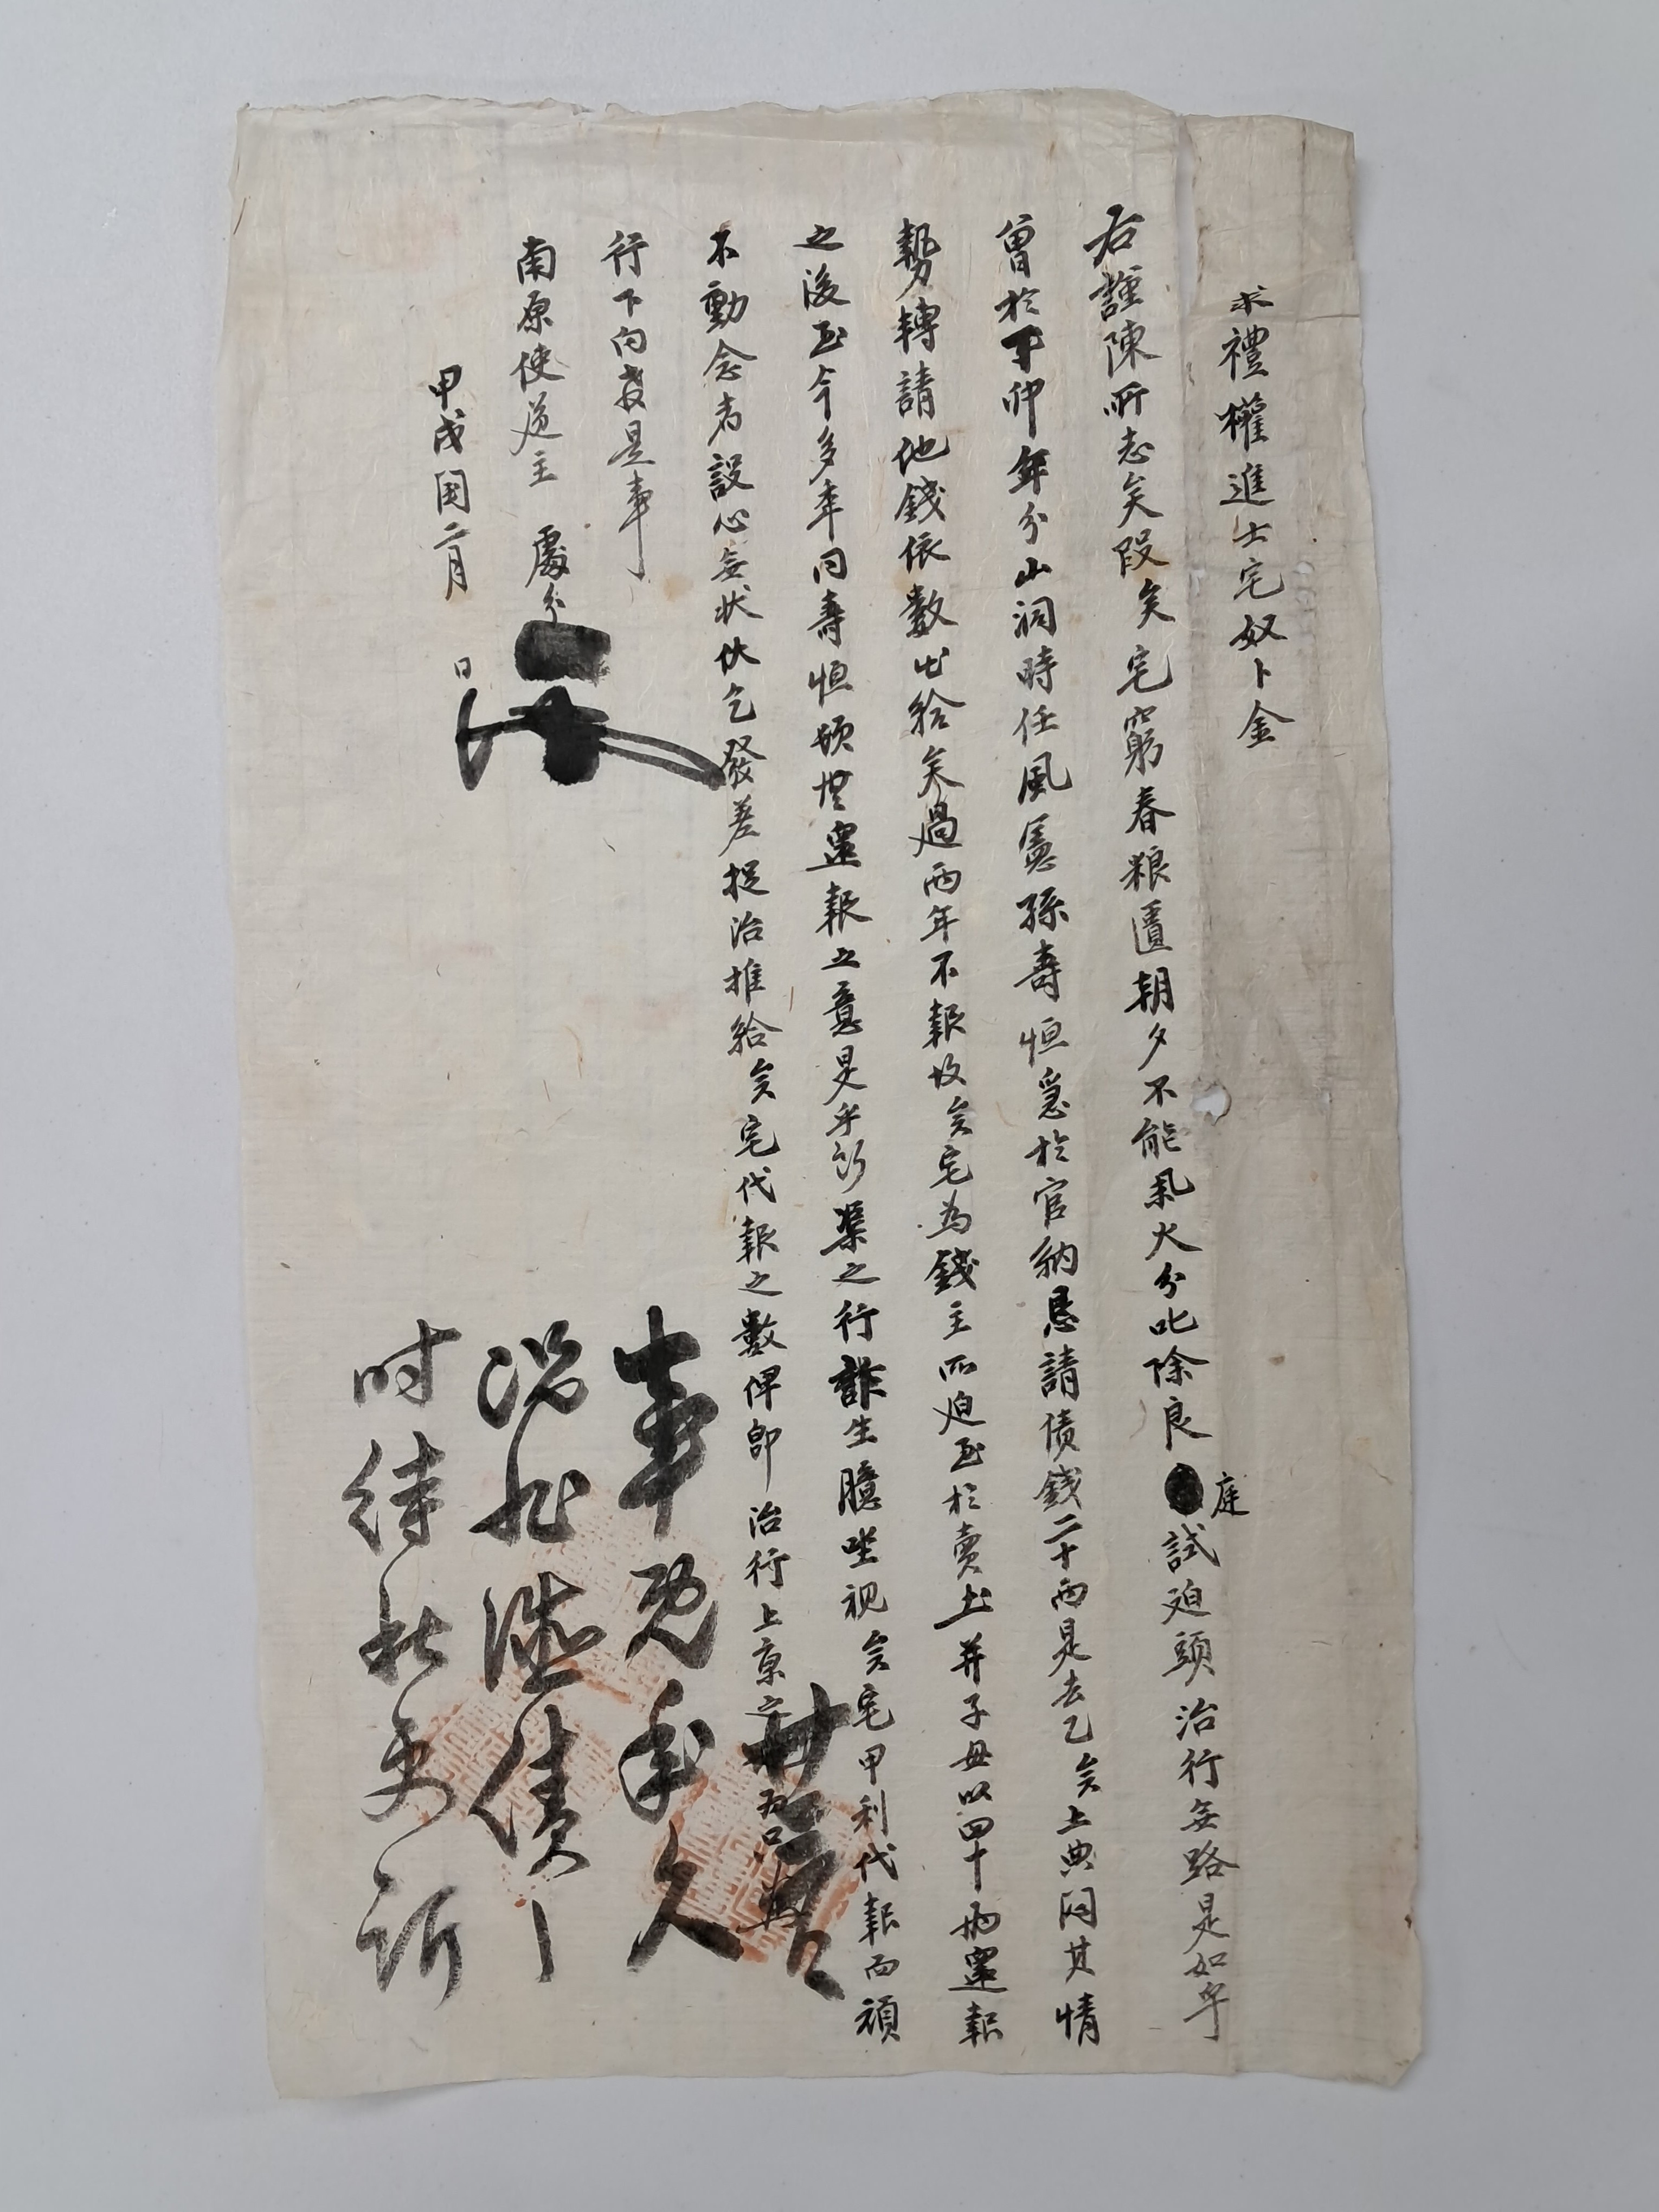 求禮權進士宅奴卜金
右謹陳所志矣段矣宅窮春粮匱朝夕不能炁火分叱除良庭試迫頭治行無路是如乎
曾於丁卯年分山洞時任風憲孫壽恒急於官納恳請債錢二十兩是去乙矣上典悶其情
勢轉請他錢依數出給矣過兩年不報故矣宅為錢主所迫至於賣土并子母以四十兩還報
之後至今多年同壽恒頓無還報之意是乎所渠之行詐生臆坐視矣宅甲利代報而頑
不動念者設心無状伏乞發差捉治推給矣宅代報之數俾即治行上京之地為只爲
行下向敎是事
南原使道主 處分
甲戌閏二月 日
事旣年久
况非徵債之
時待秋更訴
廿二日